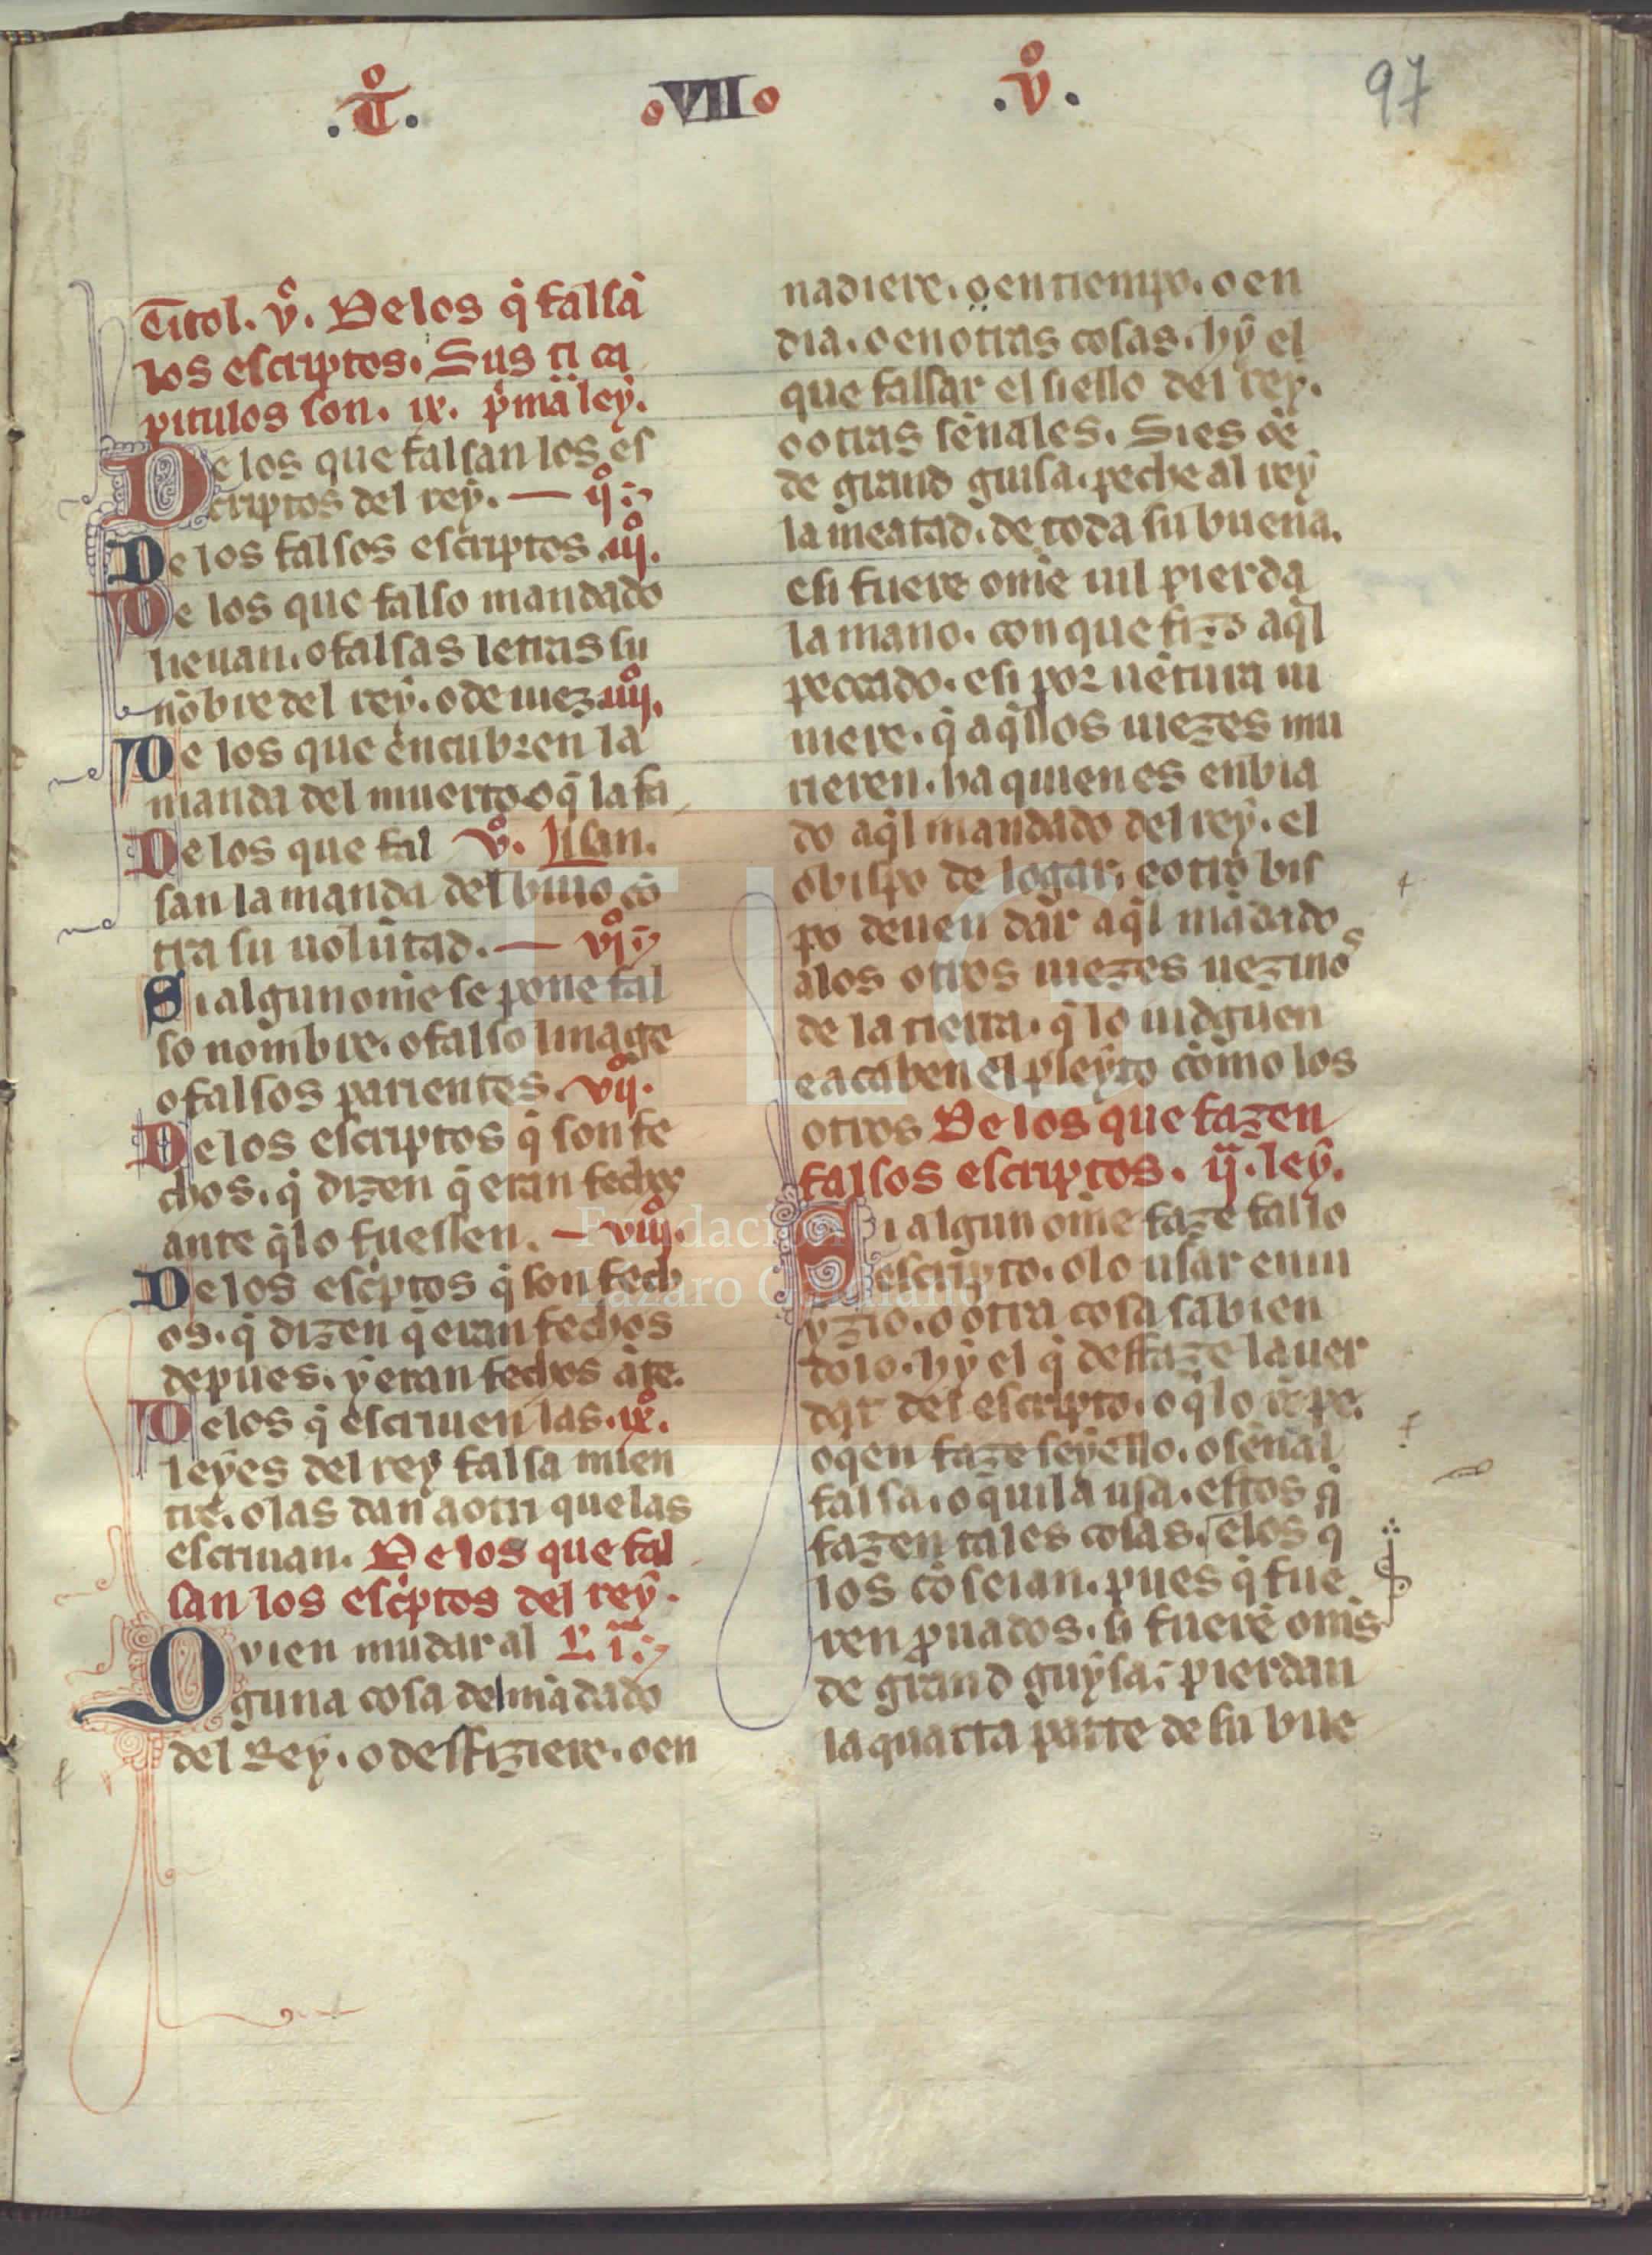 .T̊. .VII. .v̊.
97
Titol. v̊. De los q̇ falsã
los escriptos. Sus ti ca
pitulos son. ix. p̃mã ley.
De los que falsan los es
criptos del rey. — ij̊.
De los falsos escriptos .iij̊.
De los que falso mandado
lieuan. o falsas letras su
nõbre del rey. o de iuez .iiij̊.
De los que encubren la
manda del muerto. o q̇ la fa
De los que fal v̊. llsan.
san la manda del biuo cõ
tra su uolũtad. — vj̊.
Si algun om̃e se pone fal
so nombre. o falso linage
o falsos parientes. vij̊.
De los escriptos q̇ son fe
chos. q̇ dizen q̇ eran fechos
ante q̇ lo fuessen. — viij̊.
De los esc̃ptos q̇ son fech
os. q̇ dizen q̇ eran fechos
depues. y eran fechos ãte.
De los q̇ escriuen las .ix̊.
leyes del rey falsa mien
tre. o las dan a otri que las
escriuan. De los que fal
san los esc̃ptos del rey.
Qvien mudar al L. i.ª
guna cosa del mãdado
del Rey. o desfiziere. o en
nadiere. o en tiempo. o en
dia. o en otras cosas. hy el
que falsar el siello del rey.
o otras señales. Si es õe
de grand guisa. peche al rey
la meatad. de toda su buena.
e si fuere om̃e uil pierda
la mano. con que fizo aq̇l
peccado. e si por uẽtura ui
niere. q̇ aq̇llos iuezes mu
rieren. ha quien es enbia
do aq̇l mandado del rey. el
obispo de logar. e otro bis
po deuen dar aq̇l mãdado
a los otros iuezes uezinos
de la tierra. q̇ lo iudguen
e acaben el pleyto como los
otros De los que fazen
falsos escriptos. ij.ª ley.
Si algun om̃e faze falso
escripto. o lo usar en iu
yzio. o otra cosa sabien
dolo. hy el q̇ desfaze la uer
dat del escripto. o q̇ lo rõpe.
o qen faze seyello. o señal
falsa. o qui la usa. estos q̇
fazen tales cosas. e los q̇
los cõseian. pues q̇ fue
ren prouados. si fuerẽ om̃s
de grand guysa. pierdan
la quarta parte de su bue
Fundación
Lázaro Galdiano
FLG